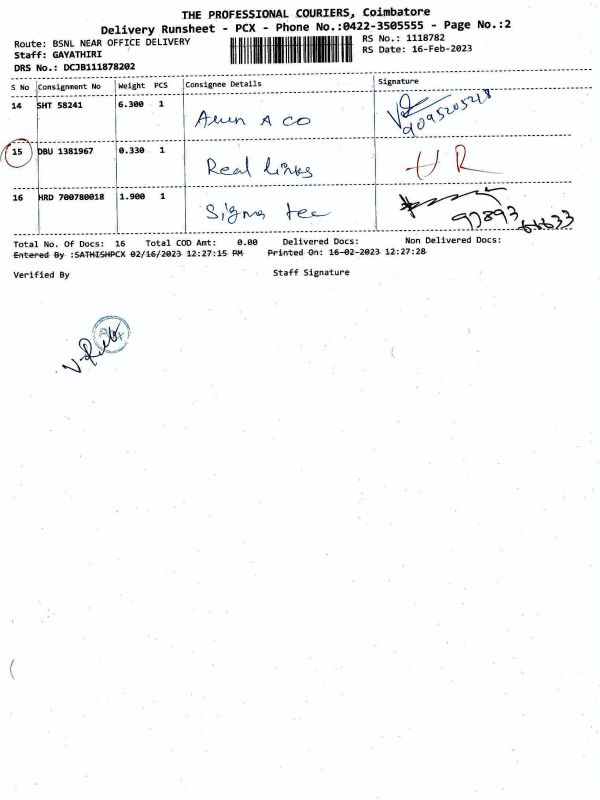 THE PROFESSIONAL COURIERS, Coimbatore
Delivery Runsheet - PCX - Phone No.:0422-3505555 - Page No.:2
Route: BSNL NEAR OFFICE DELIVERY RS No.: 1118782
Staff: GAYATHIRI RS Date: 16-Feb-2023
DRS No.: DCJB111878202
S No Consignment No Weight PCS Consignee Details Signature
14 SHT 58241 6.300 1 Arun A CO 9095205218
15 DBU 1381967 0.330 1 Real links HR
16 HRD 700780018 1.900 1 Sigma tec 97893
Total No. Of Docs: 16 Total COD Amt: 0.00 Delivered Docs: Non Delivered Docs:
Entered By :SATHISHPCX 02/16/2023 12:27:15 PM Printed On: 16-02-2023 12:27:28
Verified By Staff Signature